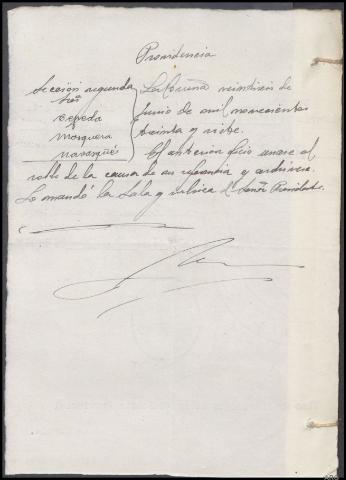 Providencia
Sección segunda
Sres
Cepeda
Mosquera
Navarqués
La Coruña veintiseis de
Junio de mil novecientos
treinta y siete.
El anterior oficio unase al
rollo de la causa de su referencia y archivese.
Lo mandó la Sala y rubrica el Señor Presidente.